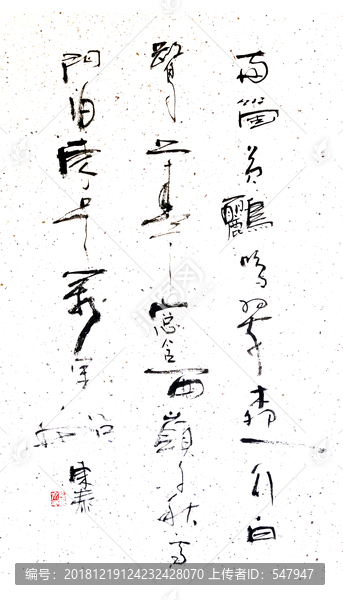 兩箇黃鸝鳴翠柳一行白
鷺上青天窗含西嶺千秋雪
門泊東吳萬里船
编号：20181219124232428070 上传者ID：547947